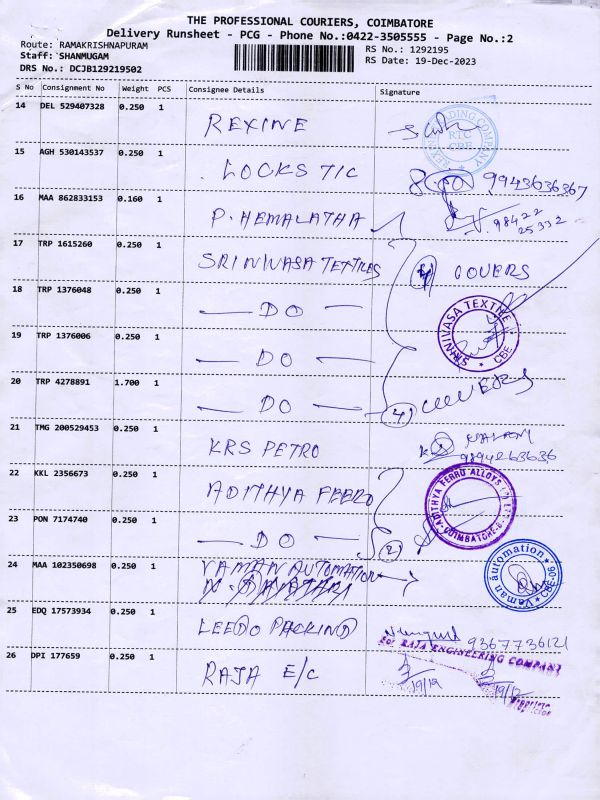 THE PROFESSIONAL COURIERS, COIMBATORE
Delivery Runsheet - PCG - Phone No.:0422-3505555 - Page No.:2
Route: RAMAKRISHNAPURAM RS No.: 1292195
Staff: SHANMUGAM RS Date: 19-Dec-2023
DRS No.: DCJB129219502
S No Consignment No Weight PCS Consignee Details Signature
14 DEL 529407328 0.250 1 REXINE
RTC
CBE
15 AGH 530143537 0.250 1 LOCKS TIC 9943636367
16 MAA 862833153 0.160 1 P. HEMALATHA 98422
25332
17 TRP 1615260 0.250 1 SRINIVASA TEXTILES 4) COVERS
18 TRP 1376048 0.250 1 — DO —
SRINIVASA TEXTILE * CBE *
19 TRP 1376006 0.250 1 — DO —
20 TRP 4278891 1.700 1 — DO — 4) COVERS
21 TMG 200529453 0.250 1 KRS PETRO
9894263636
22 KKL 2356673 0.250 1 ADITHYA FERRO
ADITHYA FERRO ALLOYS COIMBATORE
23 PON 7174740 0.250 1 — DO — 2)
24 MAA 102350698 0.250 1 VAMAN AUTOMATION
Vaman automation * CBE-06 *
25 EDQ 17573934 1 0.250 LEEDO PACKING 9367736121
For RAJA ENGINEERING COMPANY
26 DPI 177659 0.250 1 RAJA E/C 19/12 19/12